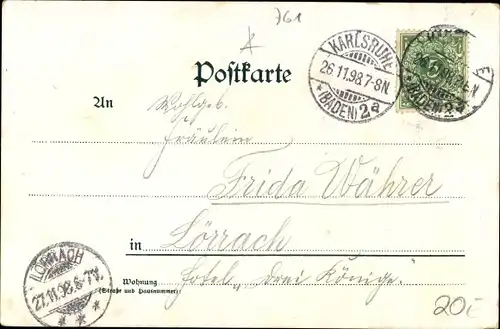 761
Postkarte
KARLSRUHE
26.11.98.7-8N.
*(BADEN) 2a
(BADEN) 2a
5
An Wohlgeb.
Fräulein
Frida Währer
in Lörrach
Hotel „drei Könige".
Wohnung
(Straße und Hausnummer)
LÖRRACH
27.11.98.6-7V.
* * *
20E